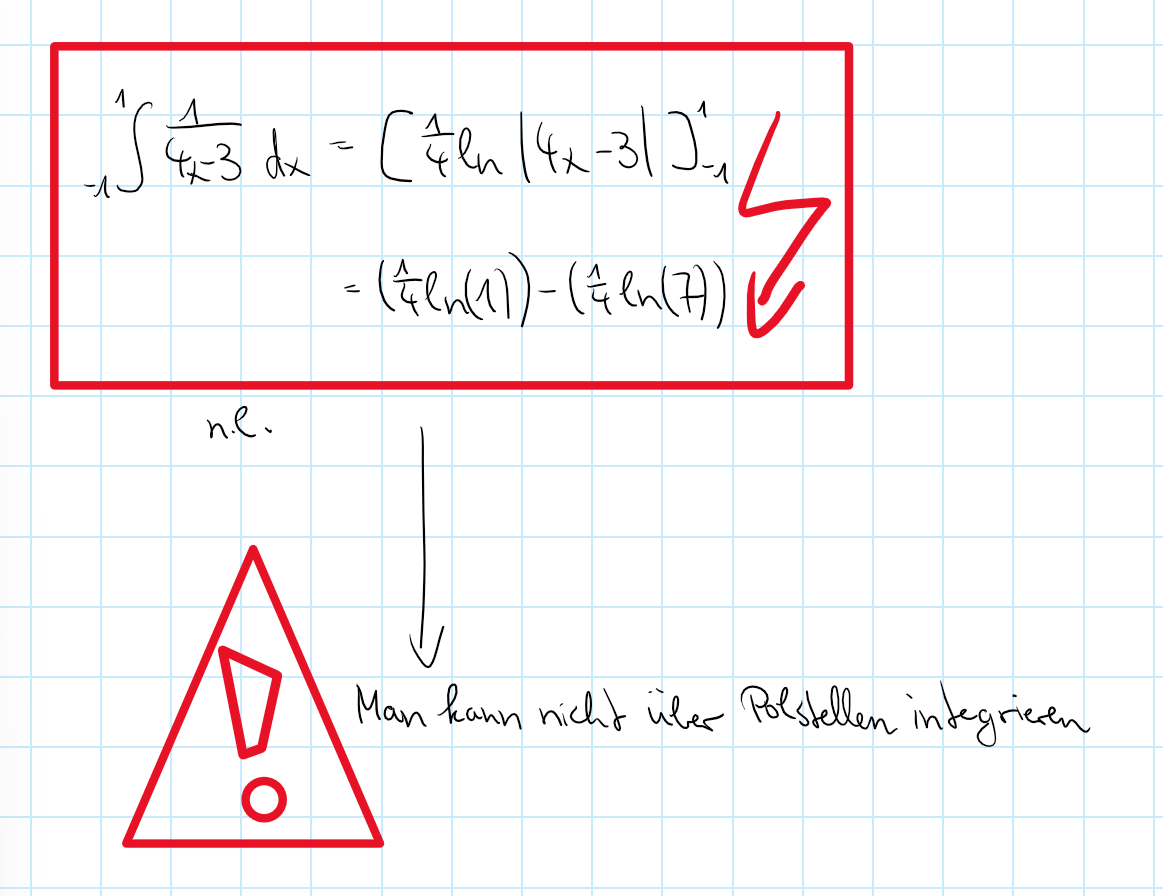 ₋₁∫¹ 1/(4x-3) dx = [1/4 ln |4x-3|]¹₋₁
= (1/4 ln(1)) - (1/4 ln(7))
n.l.
!
Man kann nicht über Polstellen integrieren